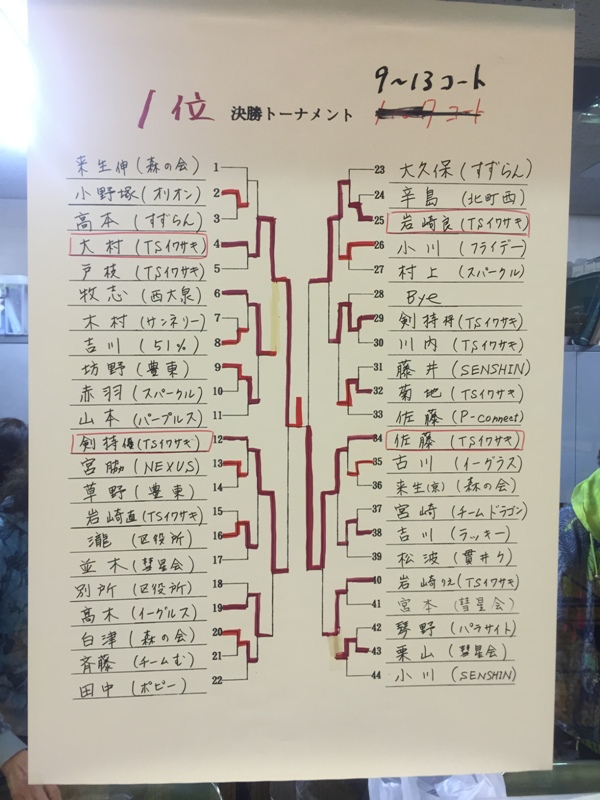 9~13コート
1位 決勝トーナメント
来生伸(森の会) 1
小野塚(オリオン) 2
高本(すずらん) 3
大村(TSイワサキ) 4
戸枝(TSイワサキ) 5
牧志(西大泉) 6
木村(サンネリー) 7
吉川(51%) 8
坊野(豊東) 9
赤羽(スパークル) 10
山本(パープルス) 11
剣持優(TSイワサキ) 12
宮脇(NEXUS) 13
草野(豊東) 14
岩崎直(TSイワサキ) 15
瀧(区役所) 16
並木(彗星会) 17
別所(区役所) 18
髙木(イーグルス) 19
白津(森の会) 20
斉藤(チームむ) 21
田中(ポピー) 22
23 大久保(すずらん)
24 辛島(北町西)
25 岩崎良(TSイワサキ)
26 小川(フライデー)
27 村上(スパークル)
28 Bye
29 剣持 (TSイワサキ)
30 川内(TSイワサキ)
31 藤井(SENSHIN)
32 菊地(TSイワサキ)
33 佐藤(P-connect)
34 佐藤(TSイワサキ)
35 古川(イーグラス)
36 来生(京)(森の会)
37 宮崎(チームドラゴン)
38 吉川(ラッキー)
39 松波(貫井ク)
40 岩崎りえ(TSイワサキ)
41 宮本(彗星会)
42 琴野(パラサイト)
43 栗山(彗星会)
44 小川(SENSHIN)